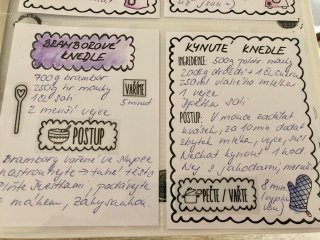 BRAMBOROVÉ
KNEDLE
700g brambor
250g hr. mouky
1 lž. soli
2 menší vejce
VAŘÍME
5 minut
POSTUP
Brambory vaříme ve slupce
nastrouháme → tuhé těsto
Plníme švestkami, podáváme
s mákem, zakysankou.
KYNUTÉ KNEDLE
INGREDIENCE: 500g polohr. mouky
20g droždí + 1 lž. cukru
250ml vlažného mléka
1 vejce
špetka soli
POSTUP: V mouce zachtát
kvásek, za 10min dodat
zbytek mléka, vejce, sůl
Nechat kynout 1 hod.
Nej s jahodami, meruň.
PEČTE / VAŘTE
8 min